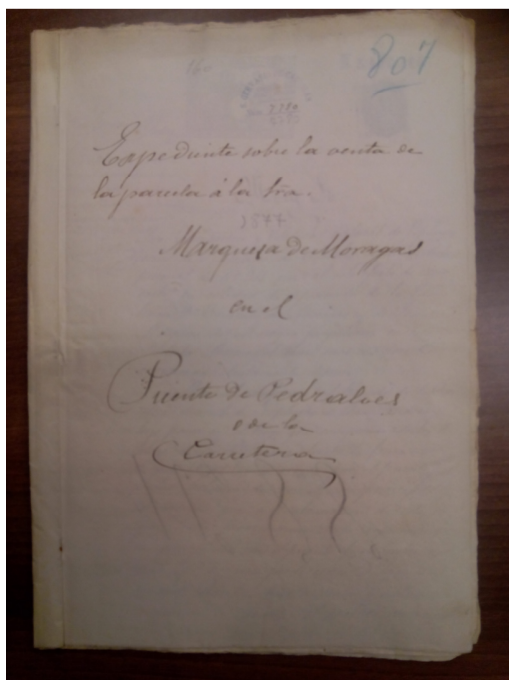 160
807
Expediente sobre la venta de
la parcela á la Sra.
1877
Marquesa de Moragas
en el
Puente de Pedralves
o de la
Carretera